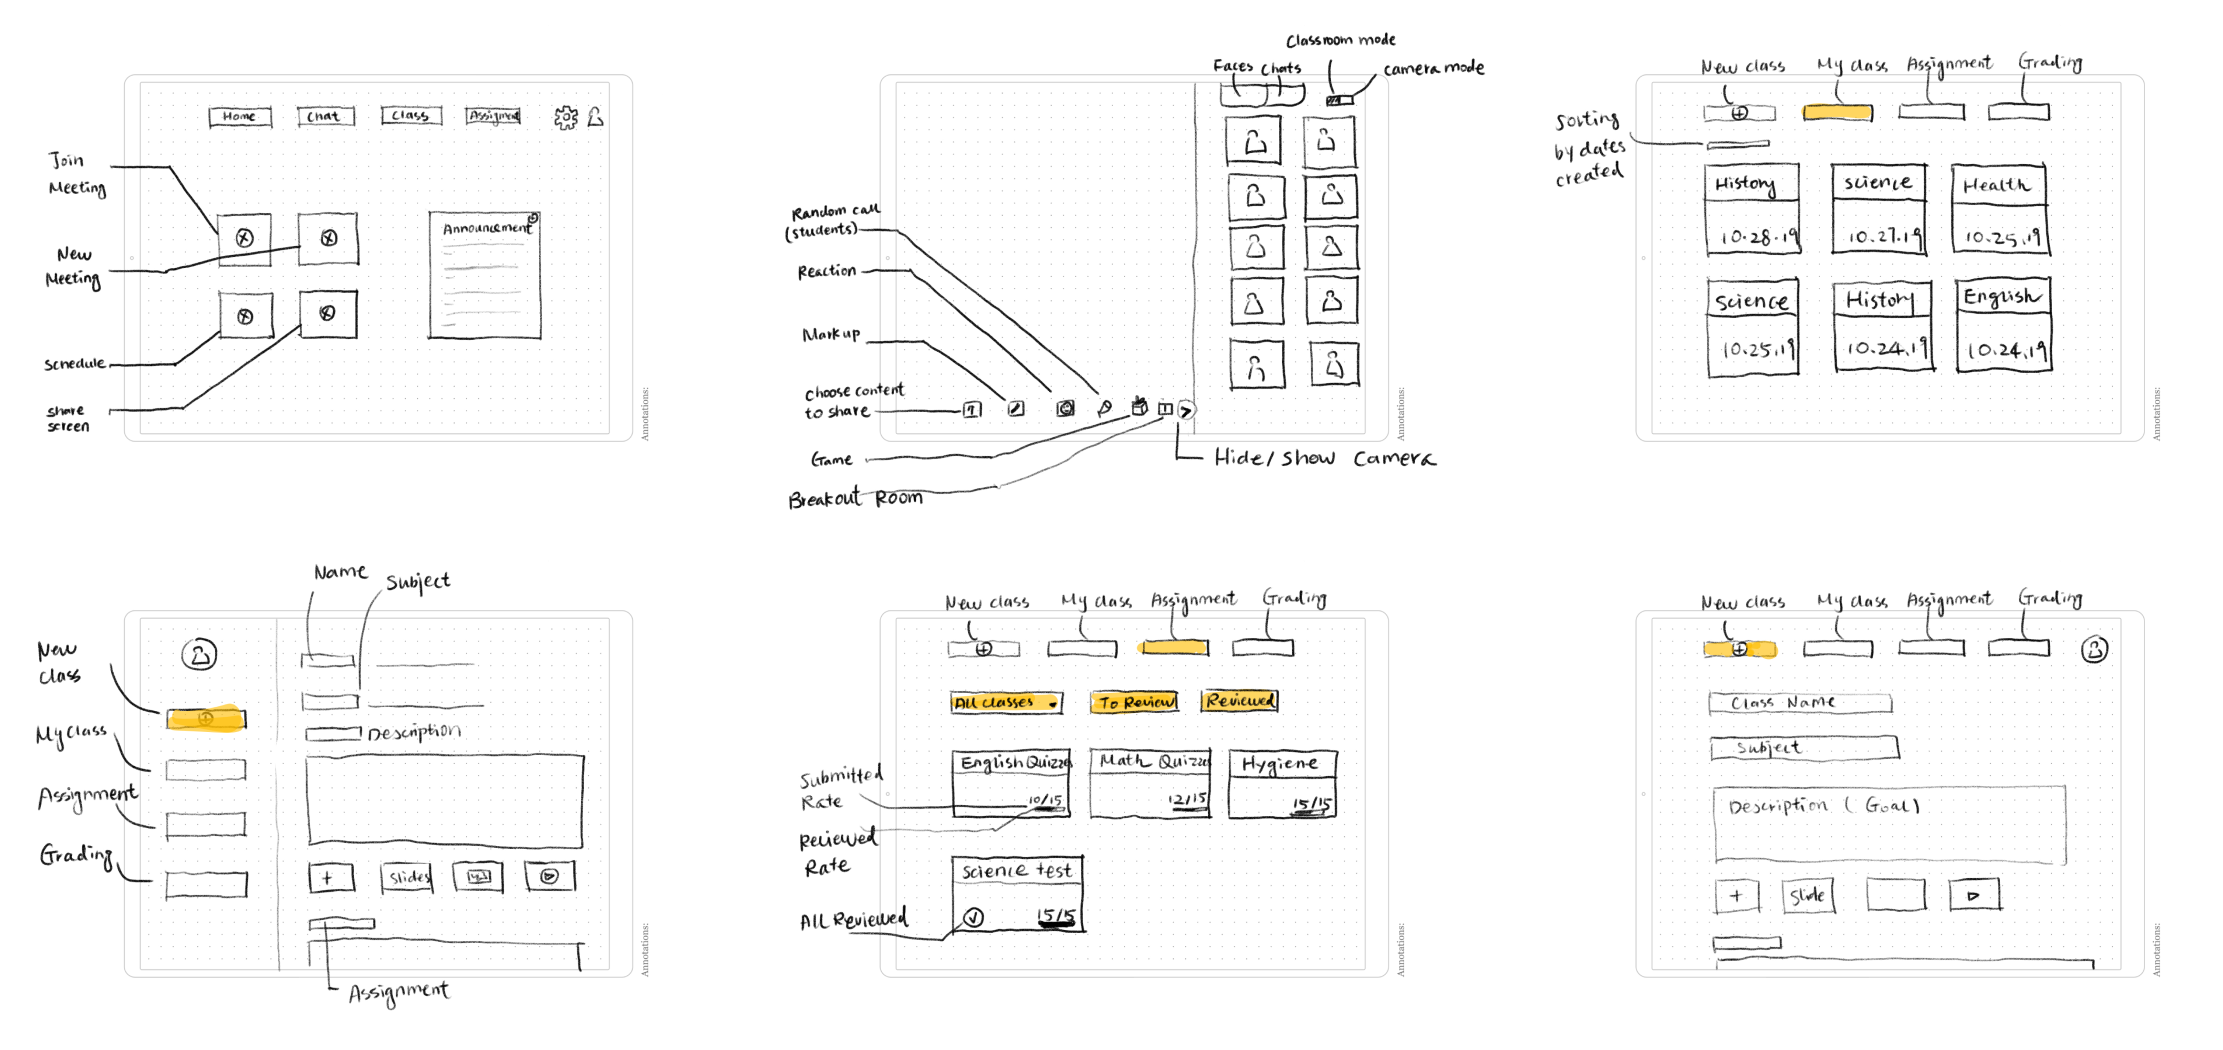 Home
Chat
Class
Assigment
Join
Meeting
New
Meeting
Schedule
share
screen
Announcement
Annotations:
Classroom mode
Faces
Chats
camera mode
Random call
(students)
Reaction
Markup
choose content
to share
Game
Breakout Room
Hide/Show Camera
Annotations:
New class
My class
Assignment
Grading
Sorting
by dates
created
History
10.28.19
Science
10.27.19
Health
10.25.19
Science
10.25.19
History
10.24.19
English
10.24.19
Annotations:
Name
Subject
New
class
My class
Assignment
Grading
Description
+
Slides
Assignment
Annotations:
New class
My class
Assignment
Grading
All classes
To Review
Reviewed
English Quizze
10/15
Math Quizze
12/15
Hygiene
15/15
Submitted
Rate
Reviewed
Rate
Science test
15/15
All Reviewed
Annotations:
New class
My class
Assignment
Grading
Class Name
Subject
Description (Goal)
+
Slide
Annotations: